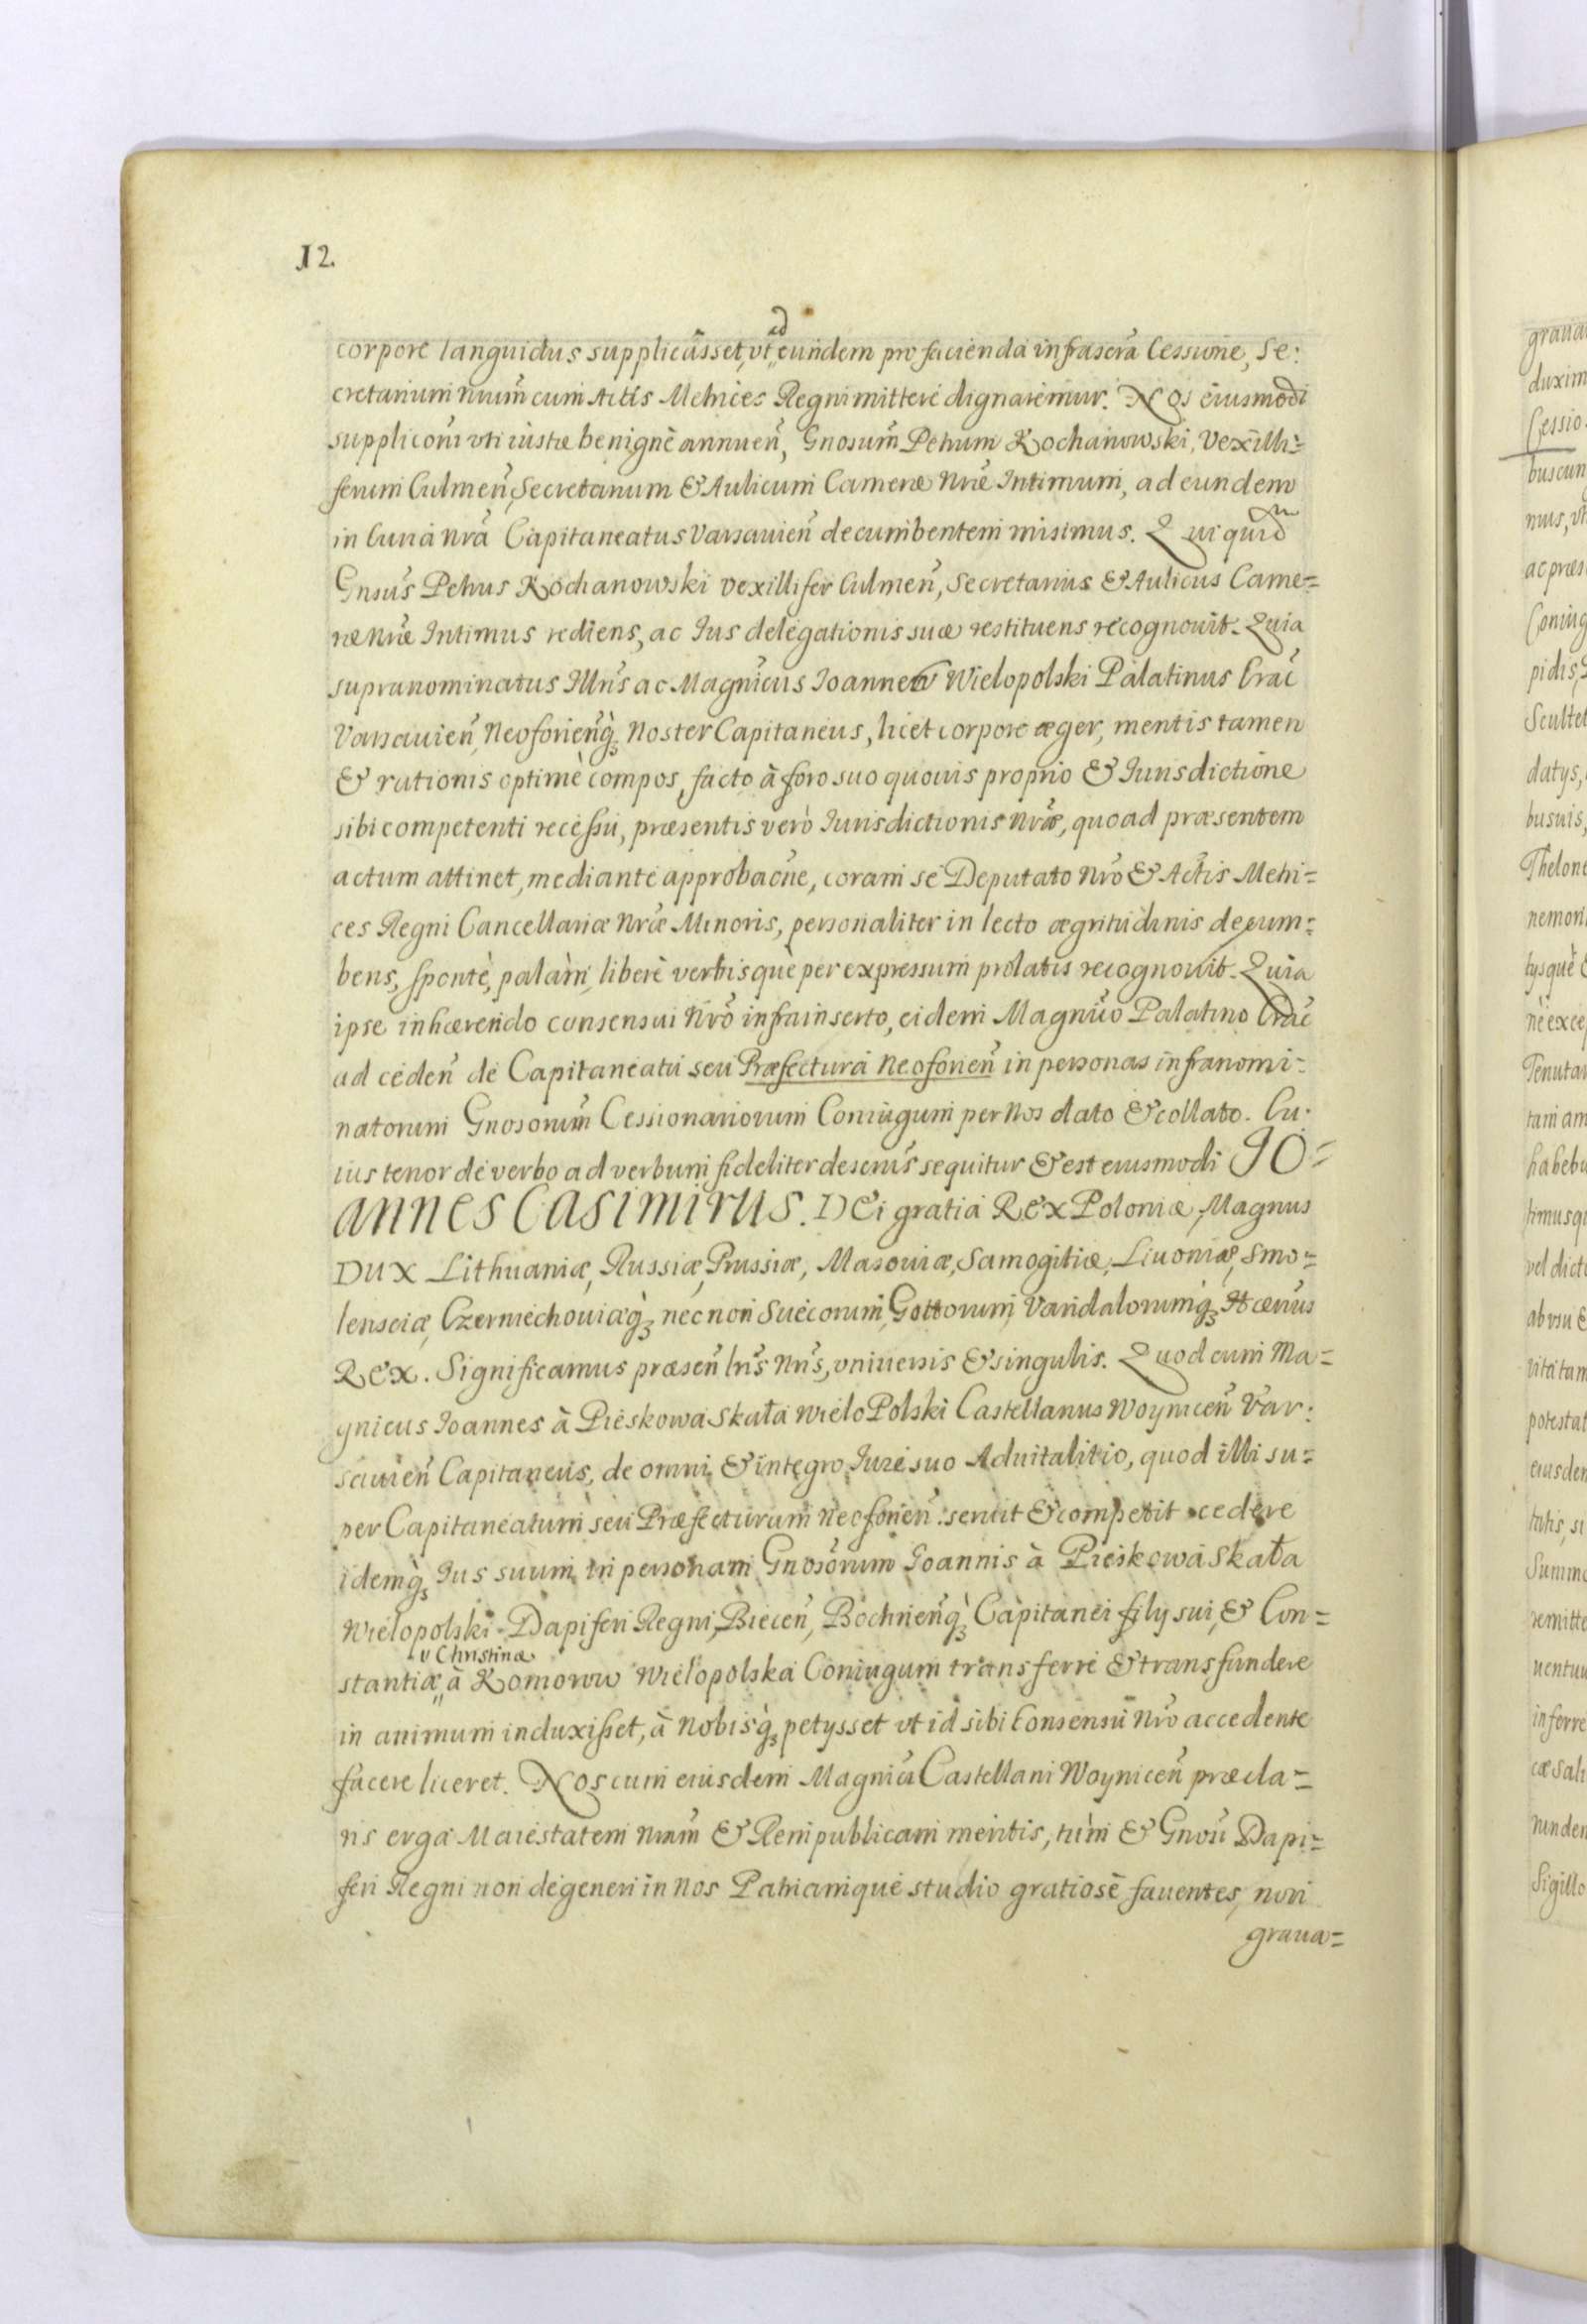 12.
corpore languidus supplicâsset, vt ad eundem pro facienda infrascrã Cessione, Se:
cretarium nrum̃ cum Actis Metrices Regni mittere dignaremur. Nos eiusmodi
suppliconi vti iustæ benignè annuen̄, Gnosum̃ Petrum Kochanowski, Vexilli=
ferum Culmen̄, Secretarium & Aulicum Cameræ Nræ Intimum, ad eundem
in Curia Nrã Capitaneatus Varsauien̄ decumbentem misimus. Qui quidm
Gnsus̃ Petrus Kochanowski Vexillifer Culmen̄, Secretarius & Aulicus Came=
ræ Nræ Intimus rediens, ac Ius delegationis suæ restituens recognouit. Quia
supranominatus Illrĩs ac Magnĩcus Ioannes Wielopolski Palatinus Crac̃
Varsauien̄, Neoforien̄q̀ꝫ Noster Capitaneus, licet corpore æger, mentis tamen
& rationis optimè compos, facto à foro suo quouis proprio & Iurisdictione
sibi competenti recessu, præsentis verò Iurisdictionis Nræ, quoad præsentem
actum attinet, mediante approbaõne, coram se Deputato Nrõ & Actis Metri=
ces Regni Cancellariæ Nræ Minoris, personaliter in lecto ægritudinis decum=
bens, spontè, palàm, liberè verbisquè per expressum prolatis recognouit. Quia
ipse inhærendo consensui Nrõ infrainserto, eidem Magnĩco Palatino Crac̃
ad ceden̄ de Capitaneatu seu Præfectura Neoforien̄ in personas infranomi=
natorum Gnosorum̃ Cessionariorum Coniugum per Nos dato & collato. Cu:
ius tenor de verbo ad verbum fideliter descrus̃ sequitur & est eiusmodi IO=
ANNES CASIMIRUS. DEi gratia REX Poloniæ, Magnus
DUX Lithuaniæ, Russiæ, Prussiæ, Masouiæ, Samogitiæ, Liuoniæ, Smo=
lensciæ, Czerniechouiæq̀ꝫ necnon Suecorum, Gottorum, Vandalorumq̀ꝫ Hærus̃
REX. Significamus præsen̄ lrĩs Nrĩs, vniuersis & singulis. Quod cum Ma=
gnicus Ioannes à Pieskowa Skała Wielo Polski Castellanus Woynicen̄ Var:
sauien̄ Capitaneus, de omni & integro Iure suo Aduitalitio, quod illi su=
per Capitaneatum seu Præfecturam Neoforien̄ seruit & competit cedere
idemq̀ꝫ Ius suum in personam Gnosorum Ioannis à Pieskowa Skała
Wielopolski Dapiferi Regni, Biecen̄, Bochnien̄q̀ꝫ Capitanei filij sui, & Con=
v Christinæ
stantiæ à Komorow Wielopolska Coniugum transferre & transfundere
in animum induxisset, à Nobisq̀ꝫ petysset vt id sibi Consensu Nrõ accedente
facere liceret. Nos cum eiusdem Magnĩci Castellani Woynicen̄ præcla=
ris erga Maiestatem Nram̃ & Rempublicam meritis, tùm & Gnosi Dapi=
feri Regni non degeneri in Nos Patriamquè studio gratiosè fauentes, non
graua=